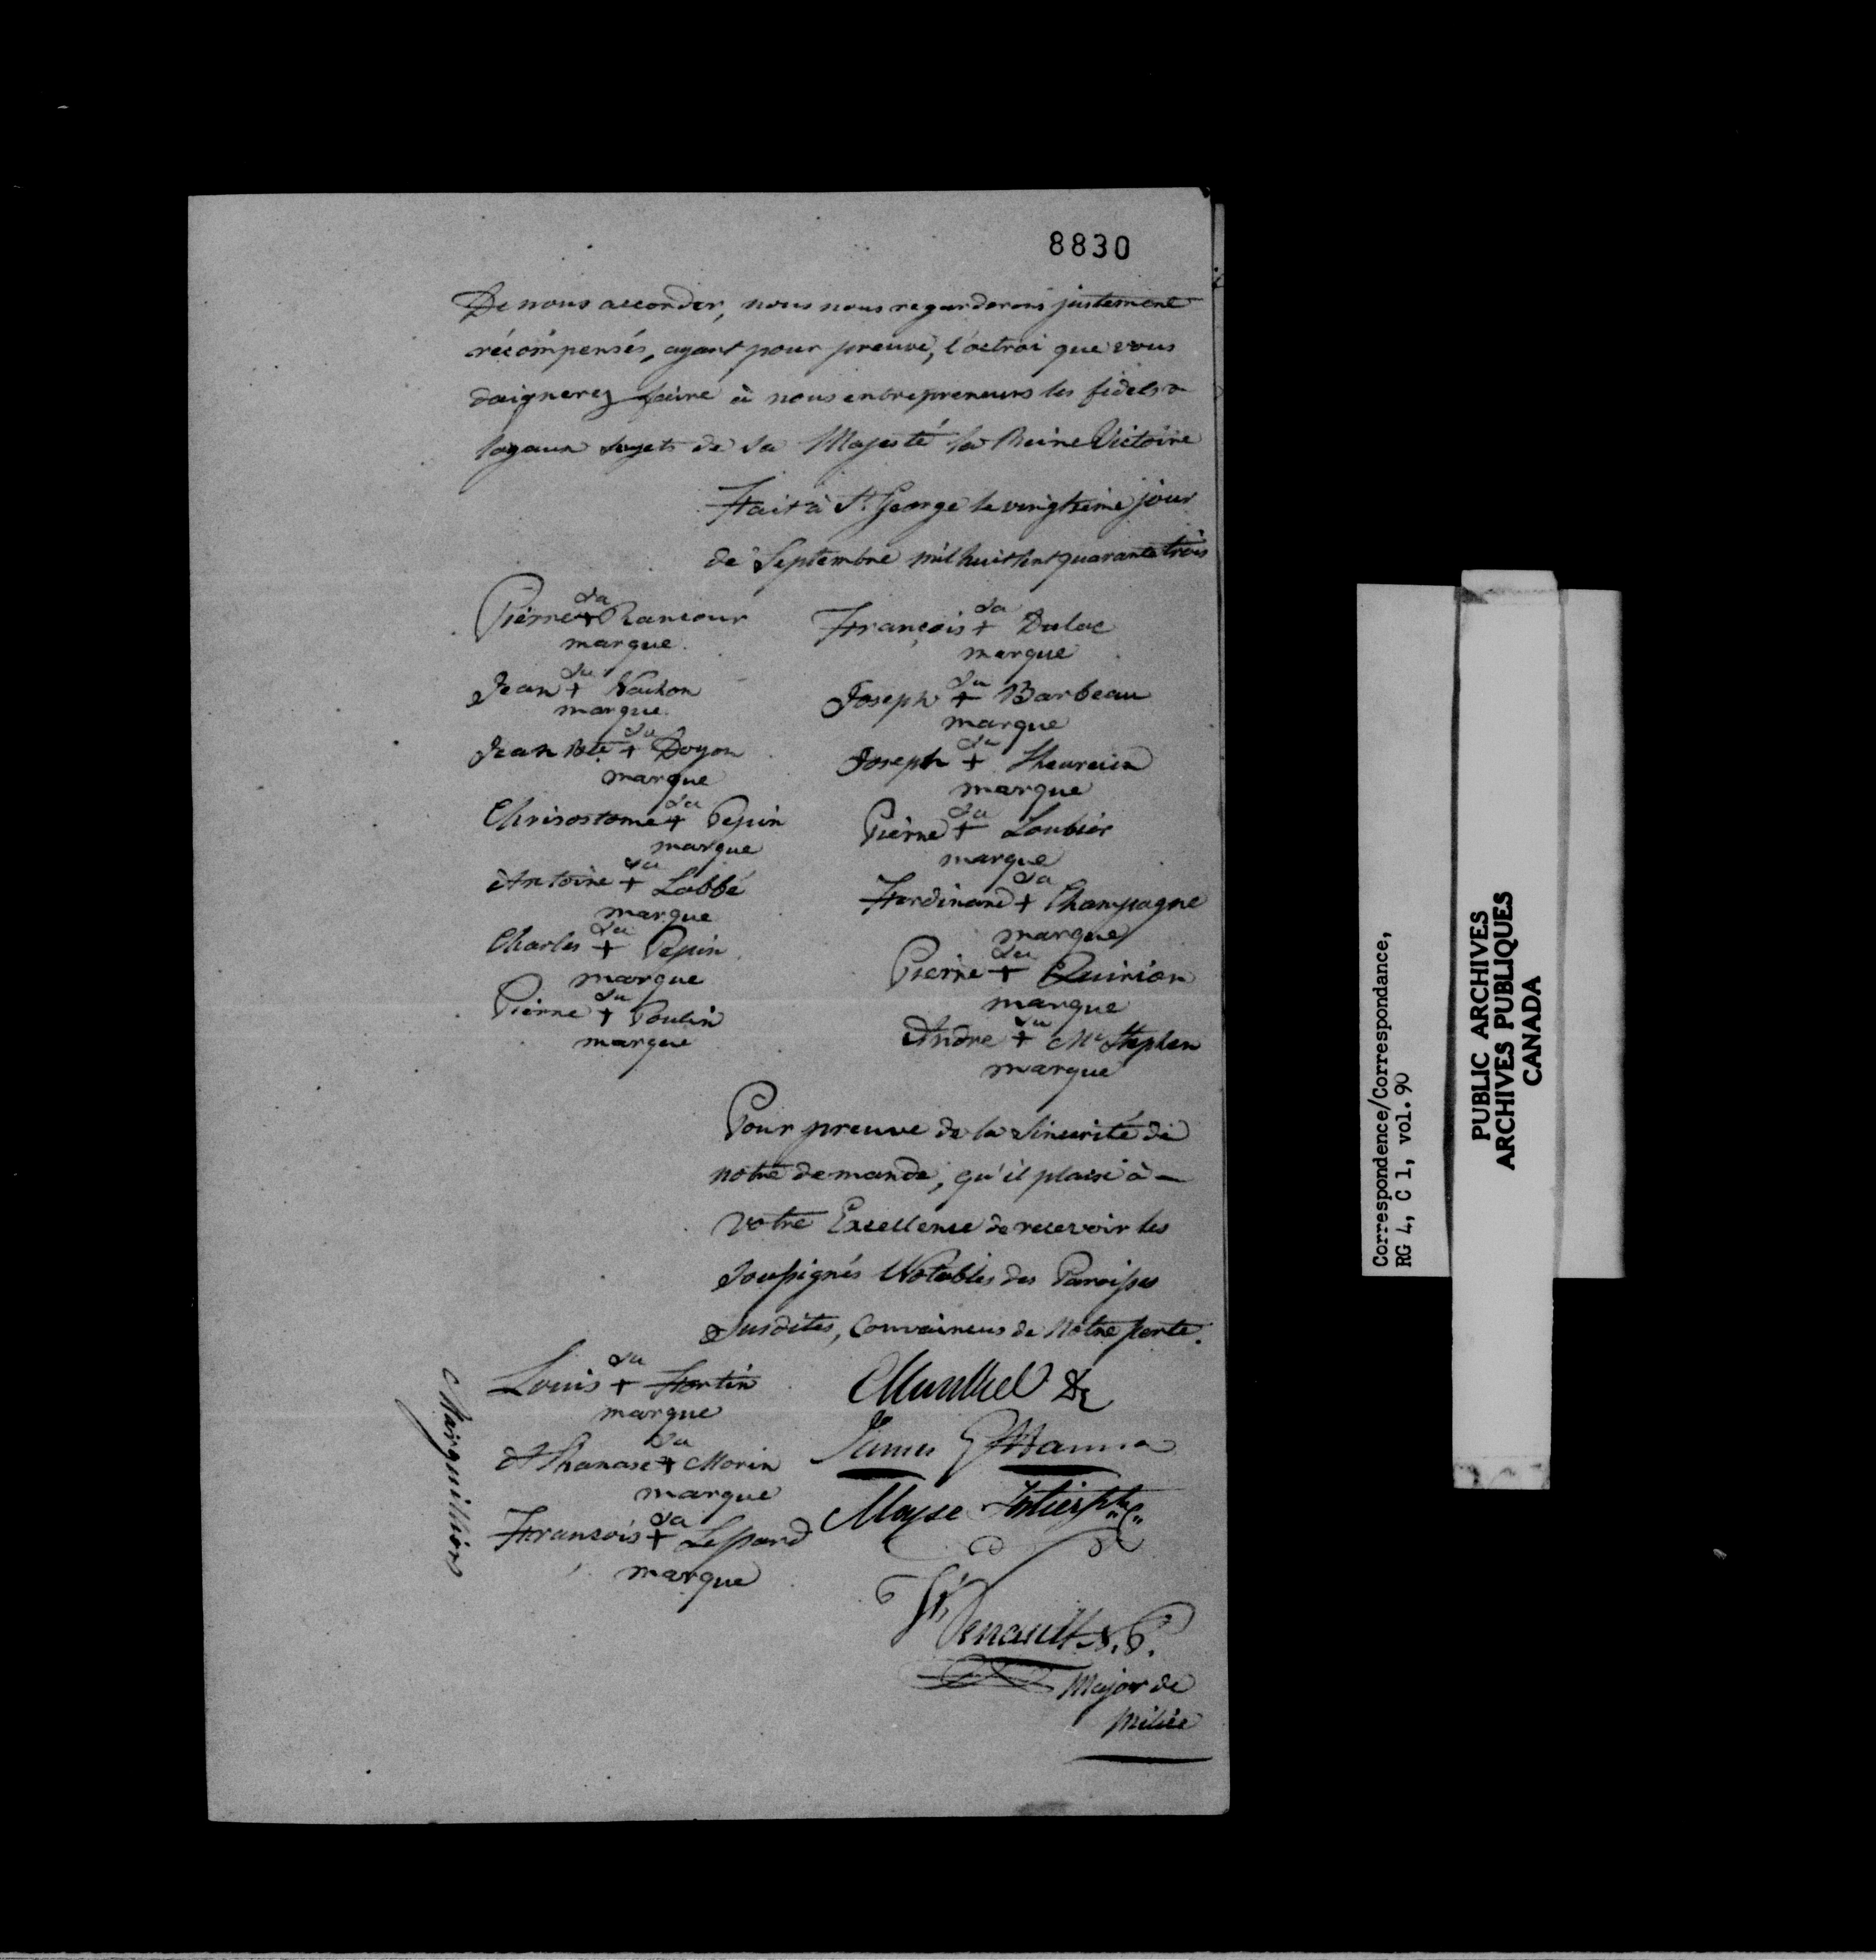 8830
De nous accorder, nous nous regarderons justement
récompensés, ayant pour preuve, l'octroi que vous
daignerez faire à nous entrepreneurs les fidels &
loyaux sujets de Sa Majesté la Reine Victoire
Fait à St George le vingtième jour
de Septembre mil huit cent quarante trois
Pierre + Rancour
sa
marque
François + Dulac
sa
marque
Jean + Vachon
sa
marque
Joseph + Barbeau
sa
marque
Jean Bte + Doyon
sa
marque
Joseph + Theureux
sa
marque
Chrisostome + Pepin
sa
marque
Pierre + Loubier
sa
marque
Antoine + Labbé
sa
marque
Ferdinand + Champagne
sa
marque
Charles + Pepin
sa
marque
Pierre + Quirion
sa
marque
Pierre + Poulin
sa
marque
Andre + Mc Stephen
sa
marque
Pour preuve de la Sincerité de
notre demande, qu'il plaise à -
Votre Excellence de recevoir les
Soussignés Notables des Paroisses
Susdites, Convaincus de Notre perte.
Marguilliers
Louis + Fortin
sa
marque
Athanase + Morin
sa
marque
Fransois + Lessard
sa
marque
James G Hanna
Moyse Fortier
Renault N. P.
Major de
Milice
Correspondence/Correspondance,
RG 4, C 1, vol. 90
PUBLIC ARCHIVES
ARCHIVES PUBLIQUES
CANADA